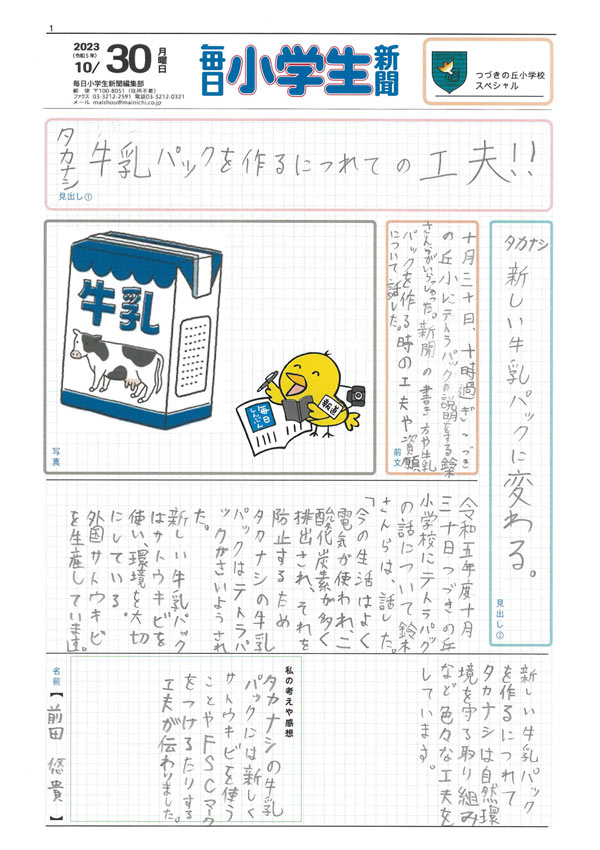 1
2023
(令和5年)
10/30 月曜日
毎日小学生新聞編集部
郵 便 〒100-8051 (住所不要)
ファクス 03-3212-2591 電話03-3212-0321
メール maishou@mainichi.co.jp
毎日小学生新聞
つづきの丘小学校
スペシャル
タカナシ
牛乳パックを作るにつれての工夫!!
見出し①
タカナシ
新しい牛乳パックに変わる。
見出し②
十月三十日、十時過ぎつづき
の丘小にテトラパックの説明をする鈴木
さんらがいらっしゃった。新聞の書き方や牛乳
パックを作る時の工夫や資源
について、話した。
前文
牛乳
報道
毎日
しんぶん
写真
令和五年度十月
三十日つづきの丘
小学校にテトラパック
の話について鈴木
さんらは、話した。
「今の生活はよく
電気が使われ、二
酸化炭素が多く
排出され、それを
防止するため
タカナシの牛乳
パックはテトラパ
ックがさいようされ
た。
新しい牛乳パック
はサトウキビを
使い、環境を大切
にしている。
外国サトウキビ
を生産しています。
新しい牛乳パック
を作るにつれて
タカナシは自然環
境を守る取り組み
など色々な工夫を
しています。
私の考えや感想
タカナシの牛乳
パックには新しく
サトウキビを使う
ことやFSCマーク
をつけるたりする
工夫が伝わりました。
名前【前田 悠貴】